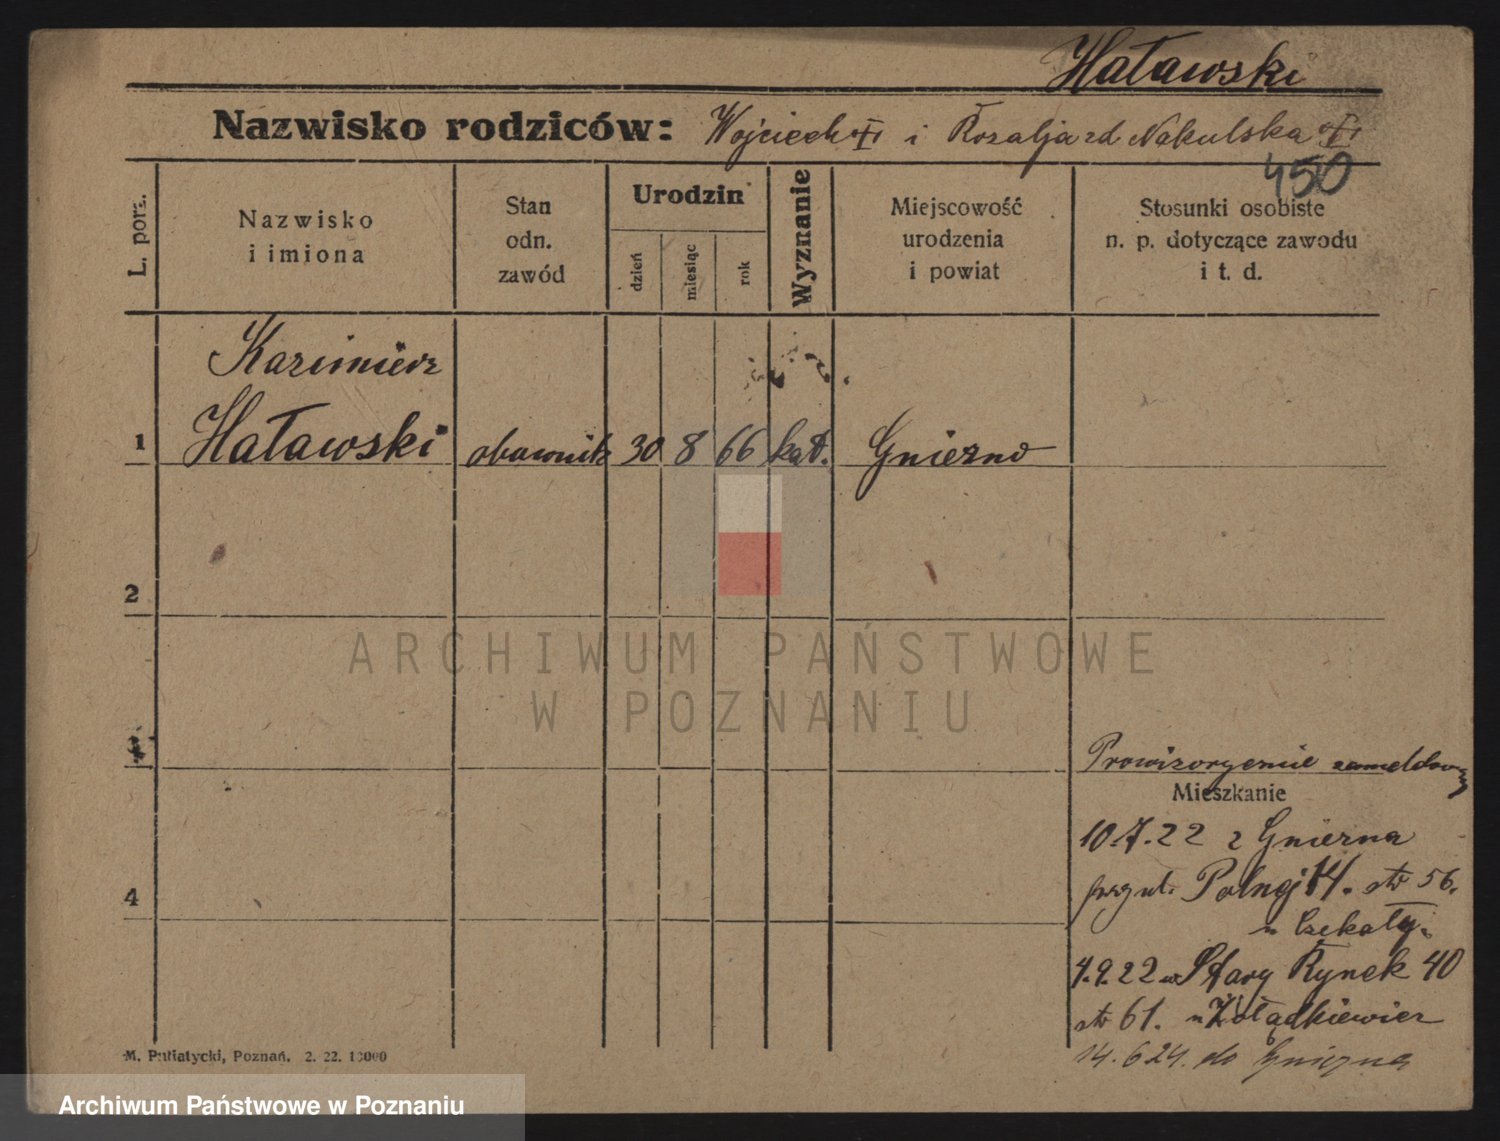 Hatawski
Nazwisko rodziców: Wojciech i Rozalja zd Nakulska
450
L. porz.
Nazwisko
i imiona
Stan
odn.
zawód
Urodzin
dzień
miesiąc
rok
Wyznanie
Miejscowość
urodzenia
i powiat
Stosunki osobiste
n. p. dotyczące zawodu
i t. d.
Kazimierz
1 Hatawski obuwnik 30 8 66 kat. Gniezno
2
ARCHIWUM PAŃSTWOWE
W POZNANIU
Prowizorycznie
Mieszkanie
10.7.22 z Gniezna
przy ul. Polnej 14. str 56.
u Czekały.
4.9.22 Stary Rynek 40
4
str 61. u Żołądkiewicz
14.6.24. do Gniezna
M. Putiatycki, Poznań. 2. 22. 10000
Archiwum Państwowe w Poznaniu